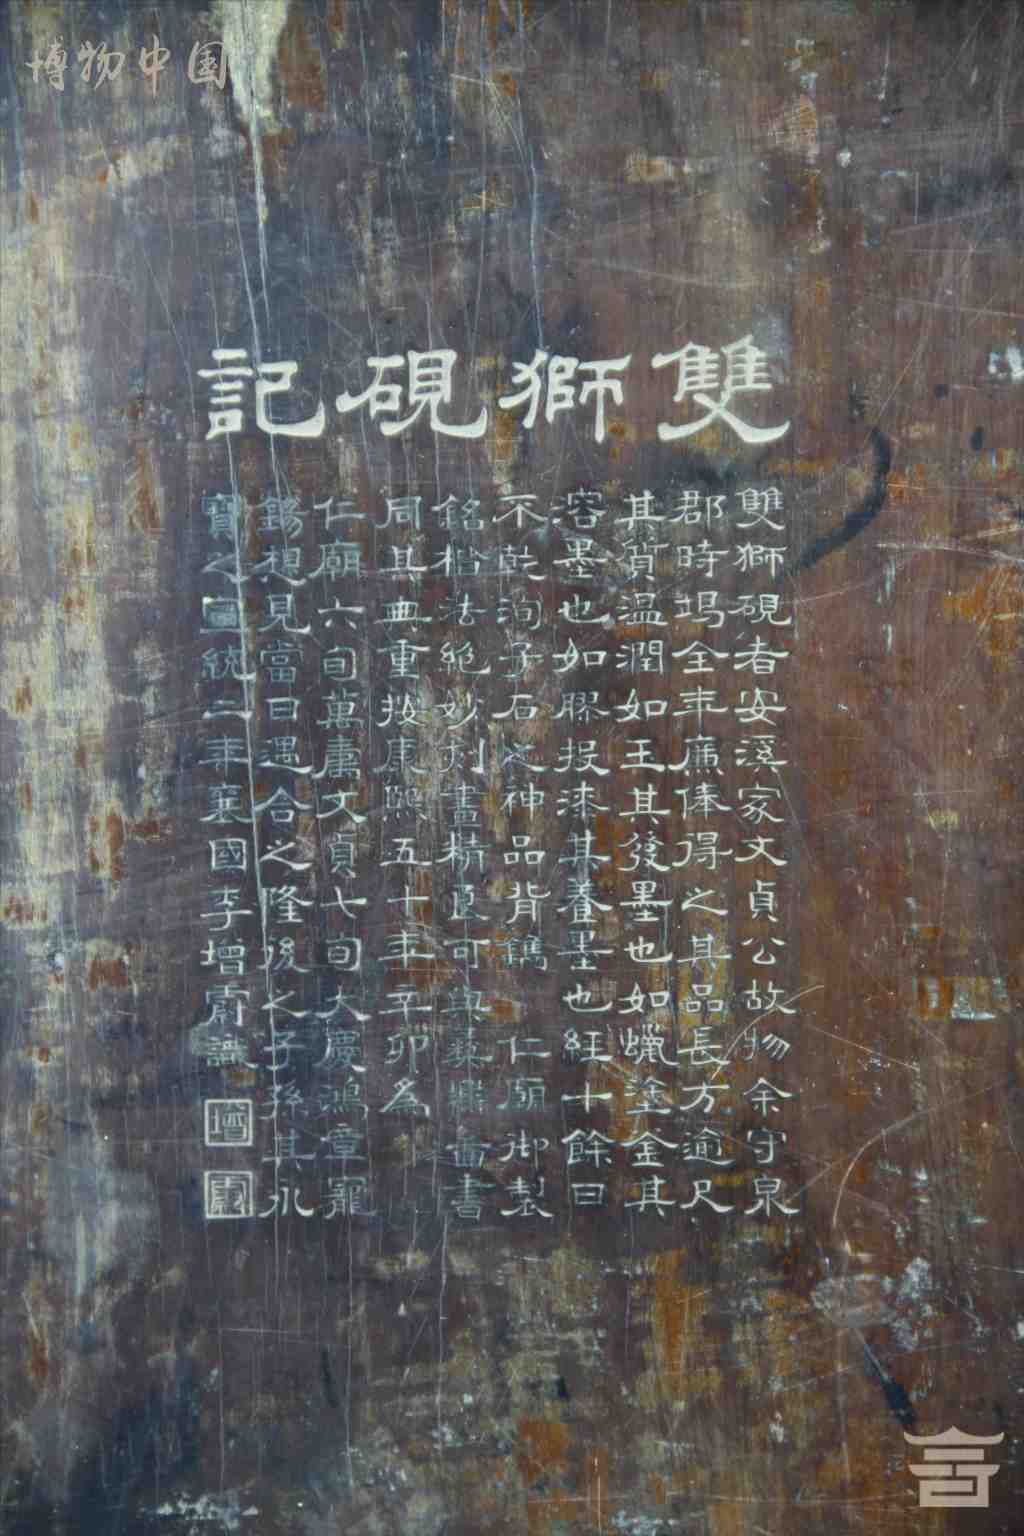 博物中国
雙獅硯記
雙獅硯者安溪家文貞公故物余守泉
郡時塲全年廉俸得之其品長方逾尺
其質温潤如玉其發墨也如蠟塗金其
容墨也如膠投漆其養墨也經十餘日
不乾洵子石之神品背鐫 仁廟御製
銘楷法絕妙刻畫精良可與蓺辦齋書
同其典重按康熙五十年辛卯為
仁廟六旬萬壽文貞七旬大慶鴻章寵
錫想見當日遇合之隆後之子孫其永
寶之宣統二年襄國李增霨識